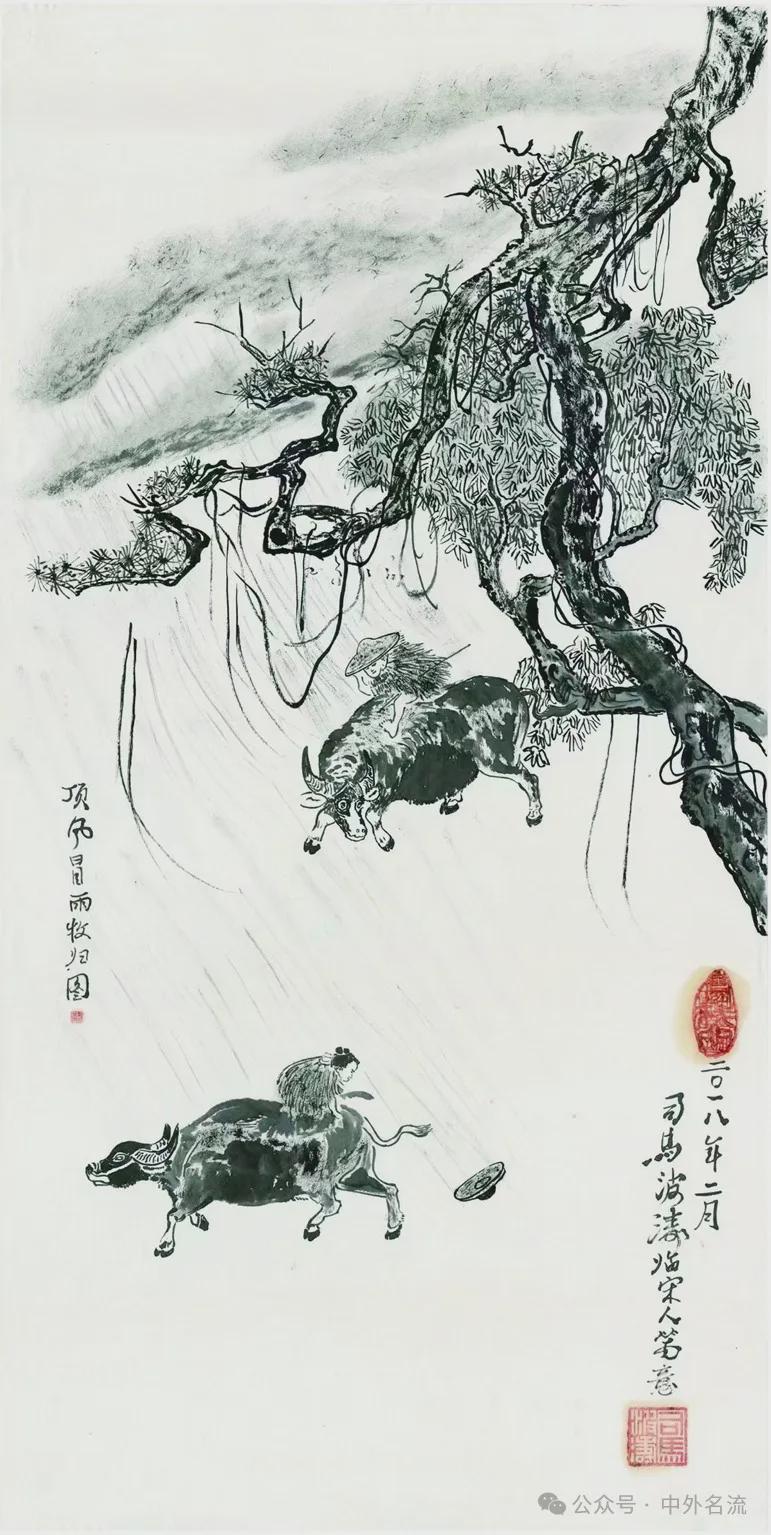 顶风冒雨牧归图
二〇一八年二月
司馬波濤临宋人笔意
司馬波濤
公众号 · 中外名流